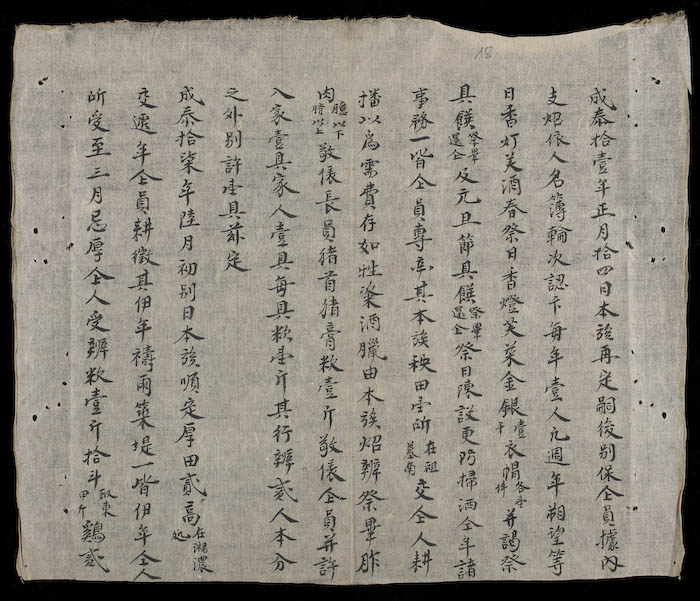 成泰拾壹年正月拾四日本族再定嗣後別保仝員據內
支炤依人名簿輪次認下每年壹人凡週年朔望等
日香灯芙酒春祭日香燈芙菜金銀壹千衣帽各壹件并謁祭
具饌祭畢還仝及元旦節具饌祭畢還仝祭日陳設更乃掃洒仝年諸
事務一皆仝員專率其本族秧田壹所在祖墓南交仝人耕
播以爲需費存如牲粢酒臘由本族炤辨祭畢胙
肉臆以下臍以上敬俵長員猪首猪膏炊壹斤敬俵仝員并許
入家壹具家人壹具每具炊壹斤其行辨貳人本分
之外別許壹具茲定
成泰拾柒年陸月初別日本族順定厚田貳高在湖濃処
交逓年仝員耕徵其伊年禱雨築堤一皆伊年仝人
所受至三月忌厚仝人受辨炊壹斤拾斗取東甲斤鷄貳
18